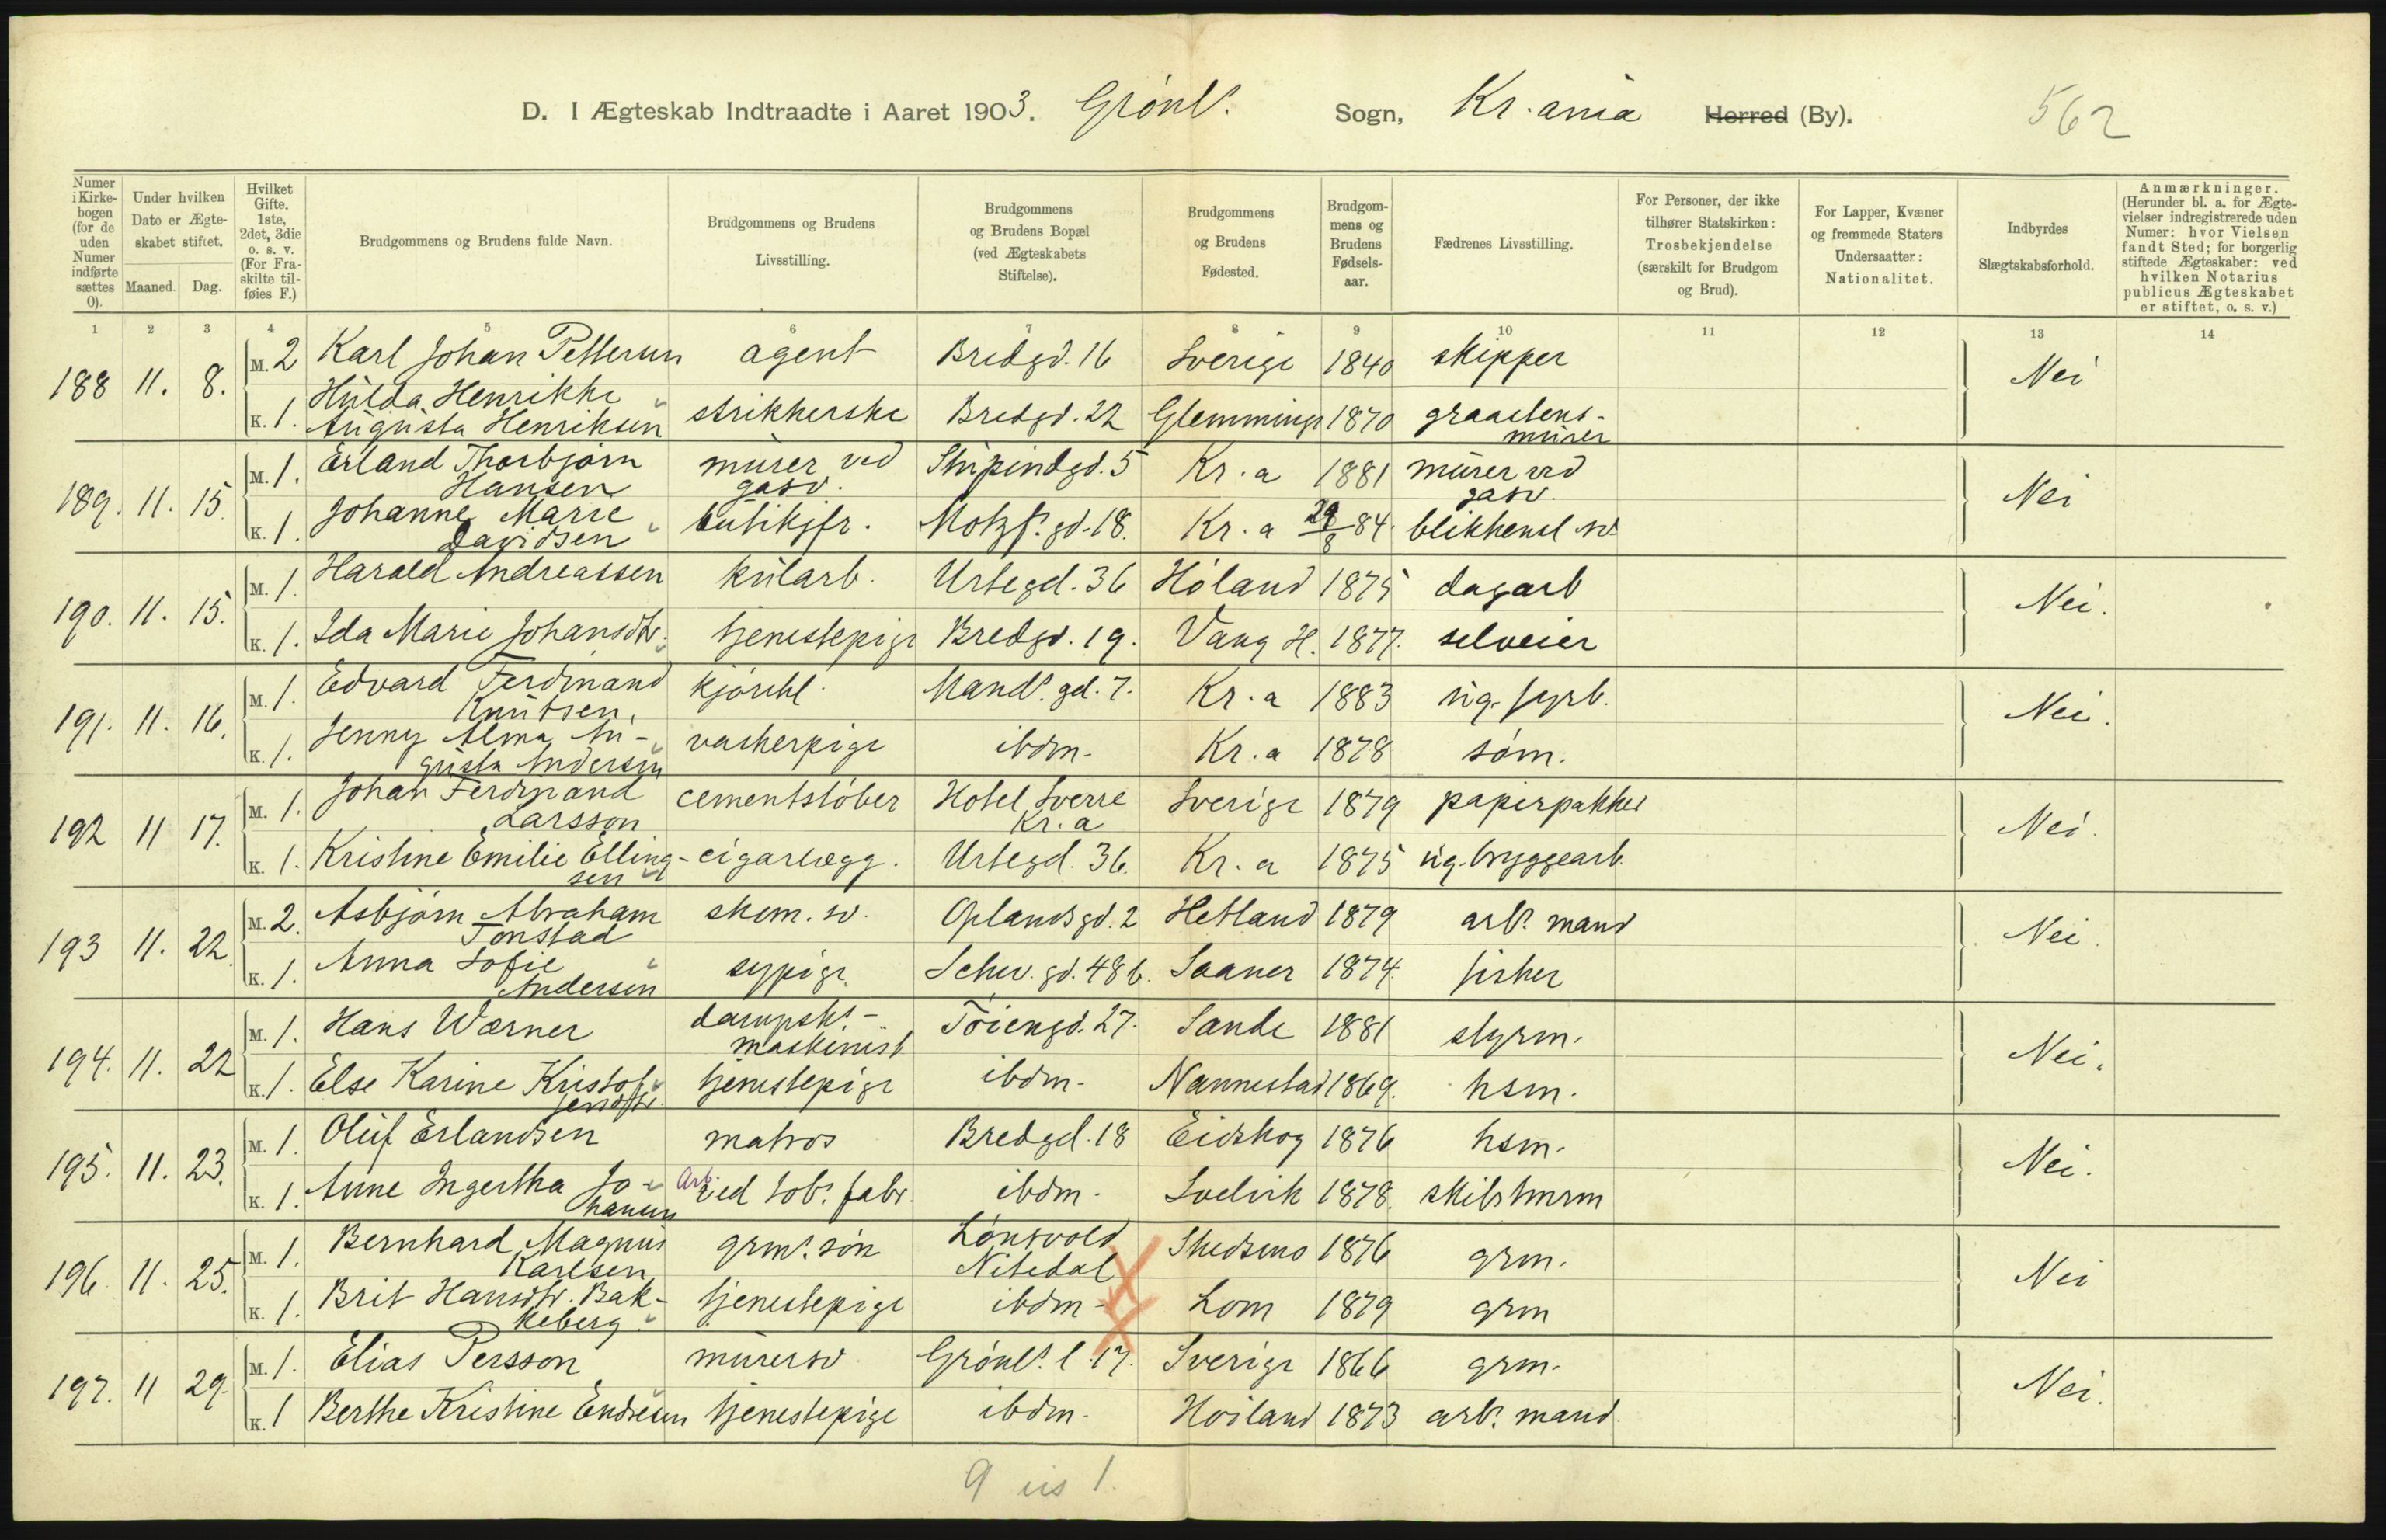 D. I Ægteskab Indtraadte i Aaret 1903. Grønl. Sogn, Kr.ania Herred (By). 562
Numer i Kirkebogen (for de uden Numer indførte sættes 0).
Under hvilken Dato er Ægteskabet stiftet.
Maaned. Dag.
Hvilket Gifte. 1ste, 2det, 3die o. s. v. (For Fraskilte tilføies F.)
Brudgommens og Brudens fulde Navn.
Brudgommens og Brudens Livsstilling.
Brudgommens og Brudens Bopæl (ved Ægteskabets Stiftelse).
Brudgommens og Brudens Fødested.
Brudgommens og Brudens Fødselsaar.
Fædrenes Livsstilling.
For Personer, der ikke tilhører Statskirken: Trosbekjendelse (særskilt for Brudgom og Brud).
For Lapper, Kvæner og fremmede Staters Undersaatter: Nationalitet.
Indbyrdes Slægtskabsforhold.
Anmærkninger. (Herunder bl. a. for Ægtevielser indregistrerede uden Numer: hvor Vielsen fandt Sted; for borgerlig stiftede Ægteskaber: ved hvilken Notarius publicus Ægteskabet er stiftet, o. s. v.)
1 2 3 4 5 6 7 8 9 10 11 12 13 14
188 11. 8. M. 2 Karl Johan Pettersen agent Bredgd. 16 Sverige 1840 skipper Nei
K. 1. Hulda Henrikke Augusta Henriksen strikkerske Bredgd. 22 Glemminge 1870 graastensmurer
189. 11. 15. M. 1. Erland Thorbjørn Hansen murer ved gasv. Stupindgd. 5 Kr.a 1881 murer ved gasv. Nei
K. 1. Johanne Marie Davidsen butikjfr. Motzf. gd. 18. Kr.a 29/8 84. blikkensl. sv.
190. 11. 15. M. 1. Harald Andreassen kularb. Urtegd. 36 Høland 1875 dagarb Nei.
K. 1. Ida Marie Johansdtr. tjenestepige Bredgd. 19. Vang H. 1877. selveier
191. 11. 16. M. 1. Edvard Ferdinand Knutsen. kjørekl. Mands. gd. 7. Kr.a 1883 ug. fyrb. Nei.
K. 1. Jenny Alma Augusta Andersen vaskerpige ibdm. Kr.a 1878 søm.
192 11 17. M. 1. Johan Ferdinand Larsson cementstøber Hotel Sverre Kr.a Sverige 1879 papirpakker Nei.
K. 1. Kristine Emilie Ellingsen cigarlægg. Urtegd. 36. Kr.a 1875 ug. bryggearb.
193 11. 22. M. 2. Asbjørn Abraham Tonstad skom. sv. Oplandsgd. 2 Hetland 1879 arb. mand Nei.
K. 1. Anna Sofie Andersen sypige. Schw. gd. 48 b. Saaner 1874. fisker
194. 11. 22 M. 1. Hans Wærner dampsk.-maskinist Tøiengd. 27. Sande 1881 styrm. Nei.
K. 1. Else Karine Kristoffersdtr. tjenestepige ibdm. Nannestad 1869. hsm.
195. 11. 23. M. 1. Oluf Erlandsen matros Bredgd. 18 Eidskog 1876 hsm. Nei.
K. 1. Anne Ingertha Johansen Arb. ved tob. fabr. ibdm. Svelvik 1878. skibstmrm
196. 11. 25. M. 1. Bernhard Magnus Karlsen grms. søn Lønsvold Nitedal Skedsmo 1876 grm. Nei
K. 1. Brit Hansdtr. Bakkeberg tjenestepige ibdm Lom 1879 grm
197. 11 29. M. 1. Elias Persson murersv. Grønl. l. 17. Sverige 1866 grm. Nei.
K. 1 Berthe Kristine Endresen tjenestepige ibdm. Høiland 1873 arb. mand